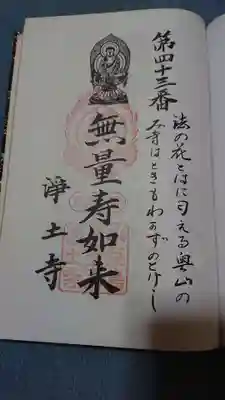 第四十三番
法の花とはに匂える奥山の
み寺はときもわかずのどけし
無量寿如来
浄土寺